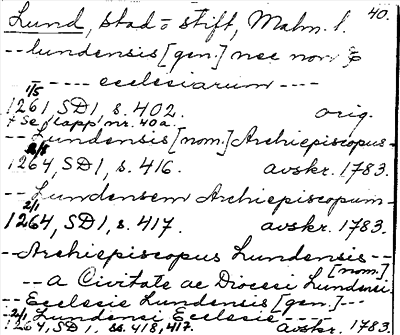 40.
Lund, stad o stift, Malm. l.
-- lundensis [gen.] nec non &
-- ---- ecclesiarum ----
1/5
1261, SD1, s. 402. orig.
+ Se lapp nr. 40a.
-- Lundensis [nom.] Archiepiscopus -
1264, SD1, s. 416. avskr. 1783.
-- Lundensem Archiepiscopum -
2/1
1264, SD1, s. 417. avskr. 1783.
-- Archiepiscopus Lundensis --
[nom.]
-- a Civitate ac Diocesi Lundensi
-- Ecclesie Lundensis [gen.] ---
-- Lundensi Ecclesie ----
2/1
1264, SD1, ss. 418, 417. avskr. 1783.